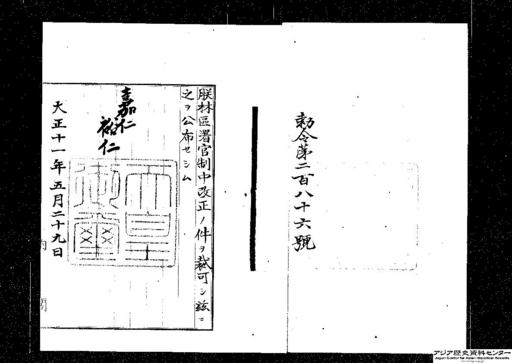 勅令第二百八十六號
朕林區署官制中改正ノ件ヲ裁可シ茲ニ
之ヲ公布セシム
嘉仁
裕仁
大正十一年五月二十九日
内閣
アジア歴史資料センター
Japan Center for Asian Historical Records